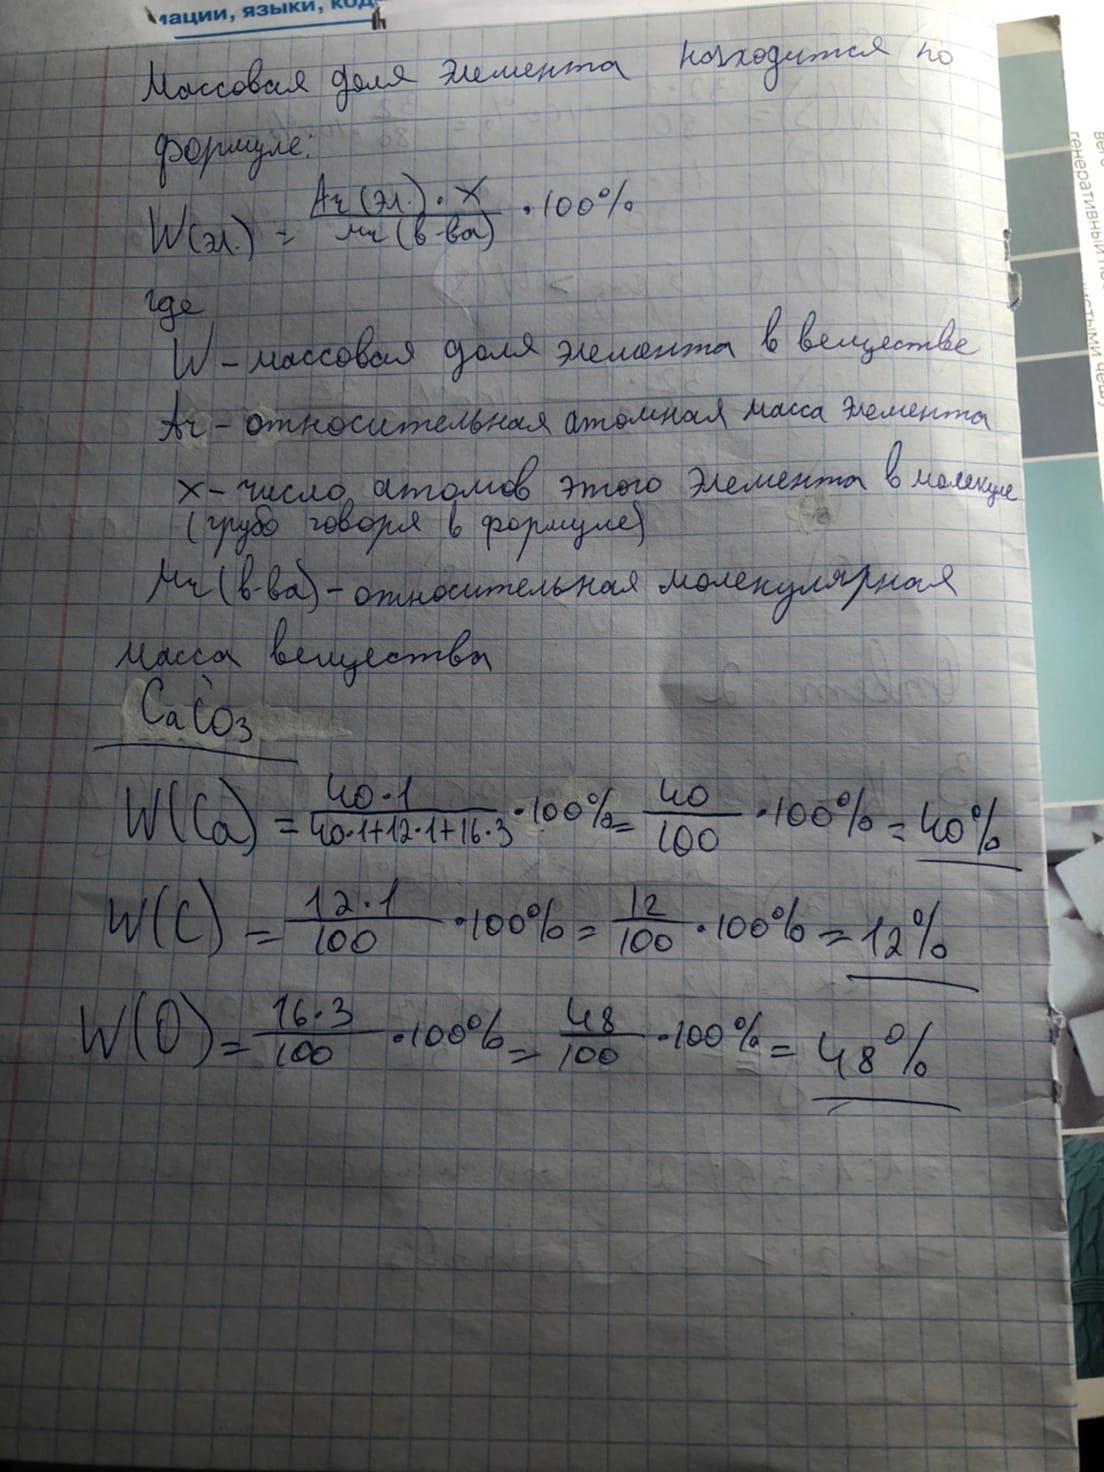 мации, языки, код
Массовая доля элемента находится по
формуле:
W(эл.) = Ar(эл.)·x / Mr(в-ва) ·100%
где
W – массовая доля элемента в веществе
Ar – относительная атомная масса элемента
x – число атомов этого элемента в молекуле
(грубо говоря в формуле)
Mr(в-ва) – относительная молекулярная
масса вещества
CaCO3
W(Ca) = 40·1 / 40·1+12·1+16·3 ·100% = 40/100 ·100% = 40%
W(C) = 12·1 / 100 ·100% = 12/100 ·100% = 12%
W(O) = 16·3 / 100 ·100% = 48/100 ·100% = 48%
генеративный